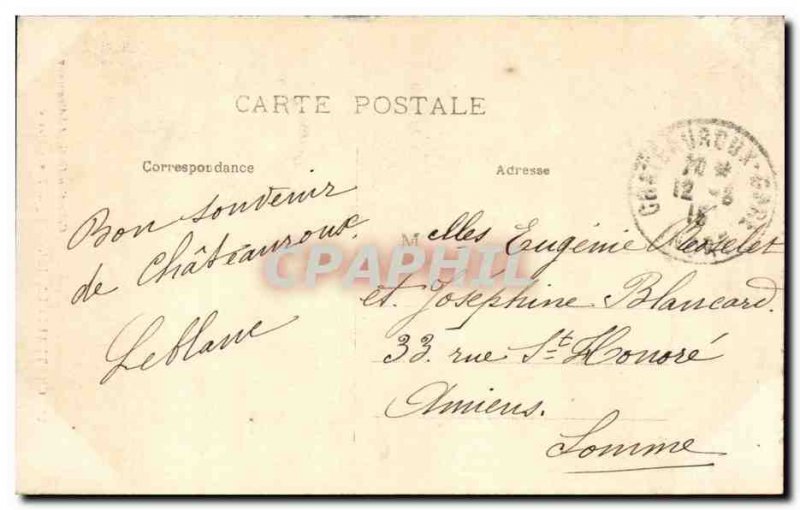 CARTE POSTALE
Correspondance
Adresse
Bon souvenir
de Châteauroux.
Leblanc
Melles Eugénie
et Joséphine Blancard.
33. rue St Honoré
Amiens.
Somme
CHATEAUROUX-GARE
12 -8
CPAPHIL